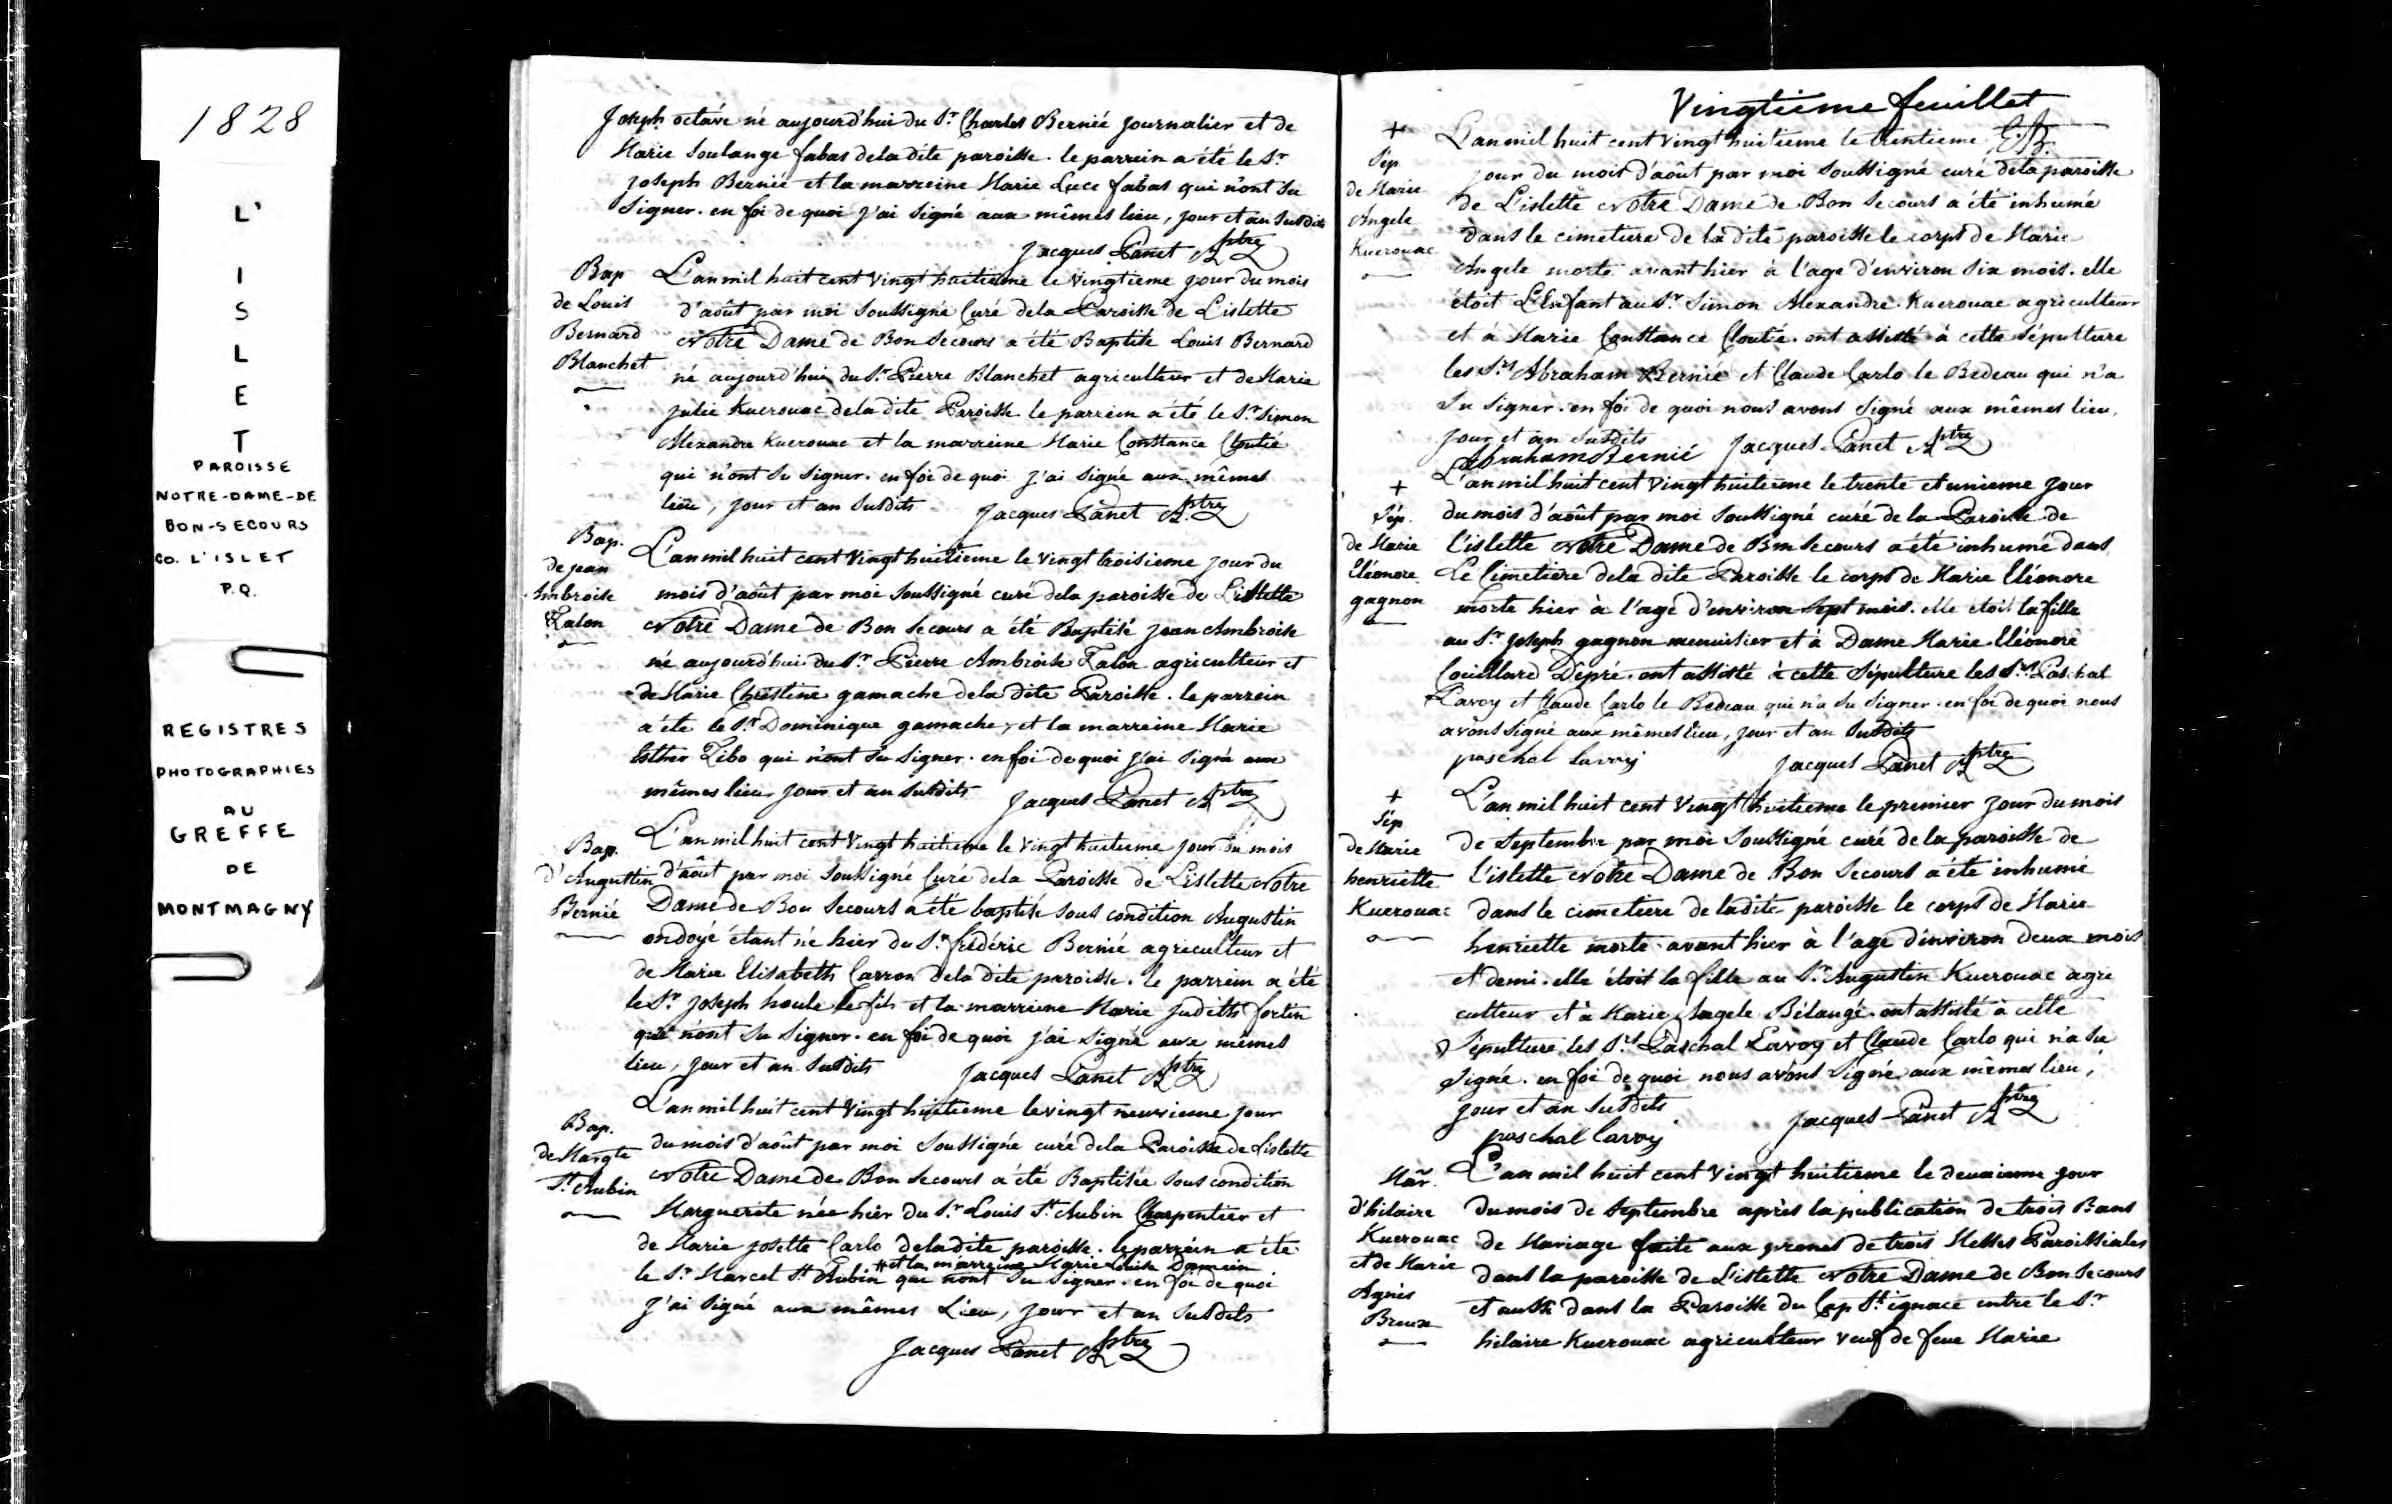 1828
L'
I
S
L
E
T
PAROISSE
NOTRE-DAME-DE
BON-SECOURS
CO. L'ISLET
P.Q.
REGISTRES
PHOTOGRAPHIES
AU
GREFFE
DE
MONTMAGNY
Joseph octave né aujourd'hui du Sr. Charles Bernié journalier et de
Marie Soulange fabas dela dite paroisse. le parrein a été le Sr
joseph Bernié et la marreine Marie Luce fabas qui n'ont su
signer. en foi de quoi j'ai signé aux mêmes lieu, jour et an susdits
Jacques Panet Ptre
Bap
de Louis
Bernard
Blanchet
L'an mil huit cent vingt huitieme le vingtieme jour du mois
d'août par moi soussigné Curé dela Paroisse de Lislette
Notre Dame de Bon Secours a été Baptisé Louis Bernard
né aujourd'hui du Sr. Pierre Blanchet agriculteur et de Marie
julie Kuerouac dela dite Paroisse le parrein a été le Sr. Simon
Alexandre Kuerouac et la marreine Marie Constance Cloutié
qui n'ont su signer. en foi de quoi j'ai signé aux mêmes
lieu, jour et an susdits Jacques Panet Ptre
Bap.
de jean
Ambroise
Talon
L'an mil huit cent vingt huitieme le vingt troisieme jour du
mois d'août par moi soussigné curé dela paroisse de Lislette
Notre Dame de Bon Secours a été Baptisé jean Ambroise
né aujourd'hui du Sr. Pierre Ambroise Talon agriculteur et
de Marie Christine gamache dela dite Paroisse. le parrein
a été le Sr. Dominique gamache, et la marreine Marie
Esther Tibo qui n'ont su signer. en foi de quoi j'ai signé aux
mêmes lieu, jour et an susdits Jacques Panet Ptre
Bap.
d'Augustin
Bernié
L'an mil huit cent vingt huitieme le vingt huitieme jour du mois
d'août par moi soussigné Curé dela Paroisse de Lislette Notre
Dame de Bon Secours a été baptisé sous condition Augustin
ondoyé étant né hier du Sr. frédéric Bernié agriculteur et
de Marie Elisabeth Carron dela dite paroisse. le parrein a été
le Sr. joseph houle le fils et la marreine Marie judith fortin
qui n'ont su signer. en foi de quoi j'ai signé aux mêmes
lieu, jour et an susdits Jacques Panet Ptre
Bap.
de Margte
St. Aubin
L'an mil huit cent vingt huitieme le vingt neuvieme jour
du mois d'août par moi soussigné curé dela Paroisse de Lislette
Notre Dame de Bon Secours a été Baptisée sous condition
Marguerite née hier du Sr. Louis St. Aubin Charpentier et
de Marie josette Carlo dela dite paroisse. le parrein a été
# et la marreine Marie Louise Damien
le Sr. Marcel St. Aubin # qui n'ont su signer. en foi de quoi
j'ai signé aux mêmes Lieu, jour et an susdits
Jacques Panet Ptre
Vingtieme feuillet
+
Sép
de Marie
Angele
Kuerouac
L'an mil huit cent vingt huitieme le trentieme
jour du mois d'août par moi soussigné curé dela paroisse
de L'islette Notre Dame de Bon Secours a été inhumé
dans le cimetiere de la dite paroisse le corps de Marie
Angele morte avant hier à l'age d'environ six mois. elle
étoit L'Enfant au Sr. Simon Alexandre Kuerouac agriculteur
et à Marie Constance Cloutié. ont assisté à cette sépulture
les Srs Abraham Bernié et Claude Carlo le Bedeau qui n'a
su signer. en foi de quoi nous avons signé aux mêmes lieu,
jour et an susdits Jacques Panet Ptre
Abraham Bernié
+
Sép.
de Marie
Eléonore
gagnon
L'an mil huit cent vingt huitieme le trente et unieme jour
du mois d'août par moi soussigné curé de la Paroisse de
l'islette Notre Dame de Bon Secours a été inhumé dans
Le Cimetiere dela dite Paroisse le corps de Marie Eléonore
morte hier à l'age d'environ sept mois. elle étoit la fille
au Sr. joseph gagnon menuisier et à Dame Marie Eléonore
Couillard Dépré. ont assisté à cette sépulture les Srs. Paschal
Lavoy et Claude Carlo le Bedeau qui n'a su signer. en foi de quoi nous
avons signé aux mêmes lieu, jour et an susdits
paschal lavoy Jacques Panet Ptre
+
Sép
de Marie
henriette
Kuerouac
L'an mil huit cent vingt huitieme le premier jour du mois
de septembre par moi soussigné curé de la paroisse de
l'islette Notre Dame de Bon Secours a été inhumé
dans le cimetiere de la dite paroisse le corps de Marie
henriette morte avant hier à l'age d'environ deux mois
et demi. elle étoit la fille au Sr. Augustin Kuerouac agri
culteur et à Marie Angele Bélangé. ont assisté à cette
Sépulture, les Srs Paschal Lavoy et Claude Carlo qui n'a su
signé. en foi de quoi nous avons signé aux mêmes lieu,
jour et an susdits Jacques Panet Ptre
paschal lavoy
Mar.
d'hilaire
Kuerouac
et de Marie
Agnès
Breux
L'an mil huit cent vingt huitieme le deuxieme jour
du mois de septembre après la publication de trois Bans
de Mariage faite aux prones de trois Messes Paroissiales
dans la paroisse de L'islette Notre Dame de Bon Secours
et aussi dans la Paroisse du Cap St. ignace entre le Sr.
hilaire Kuerouac agriculteur veuf de feue Marie